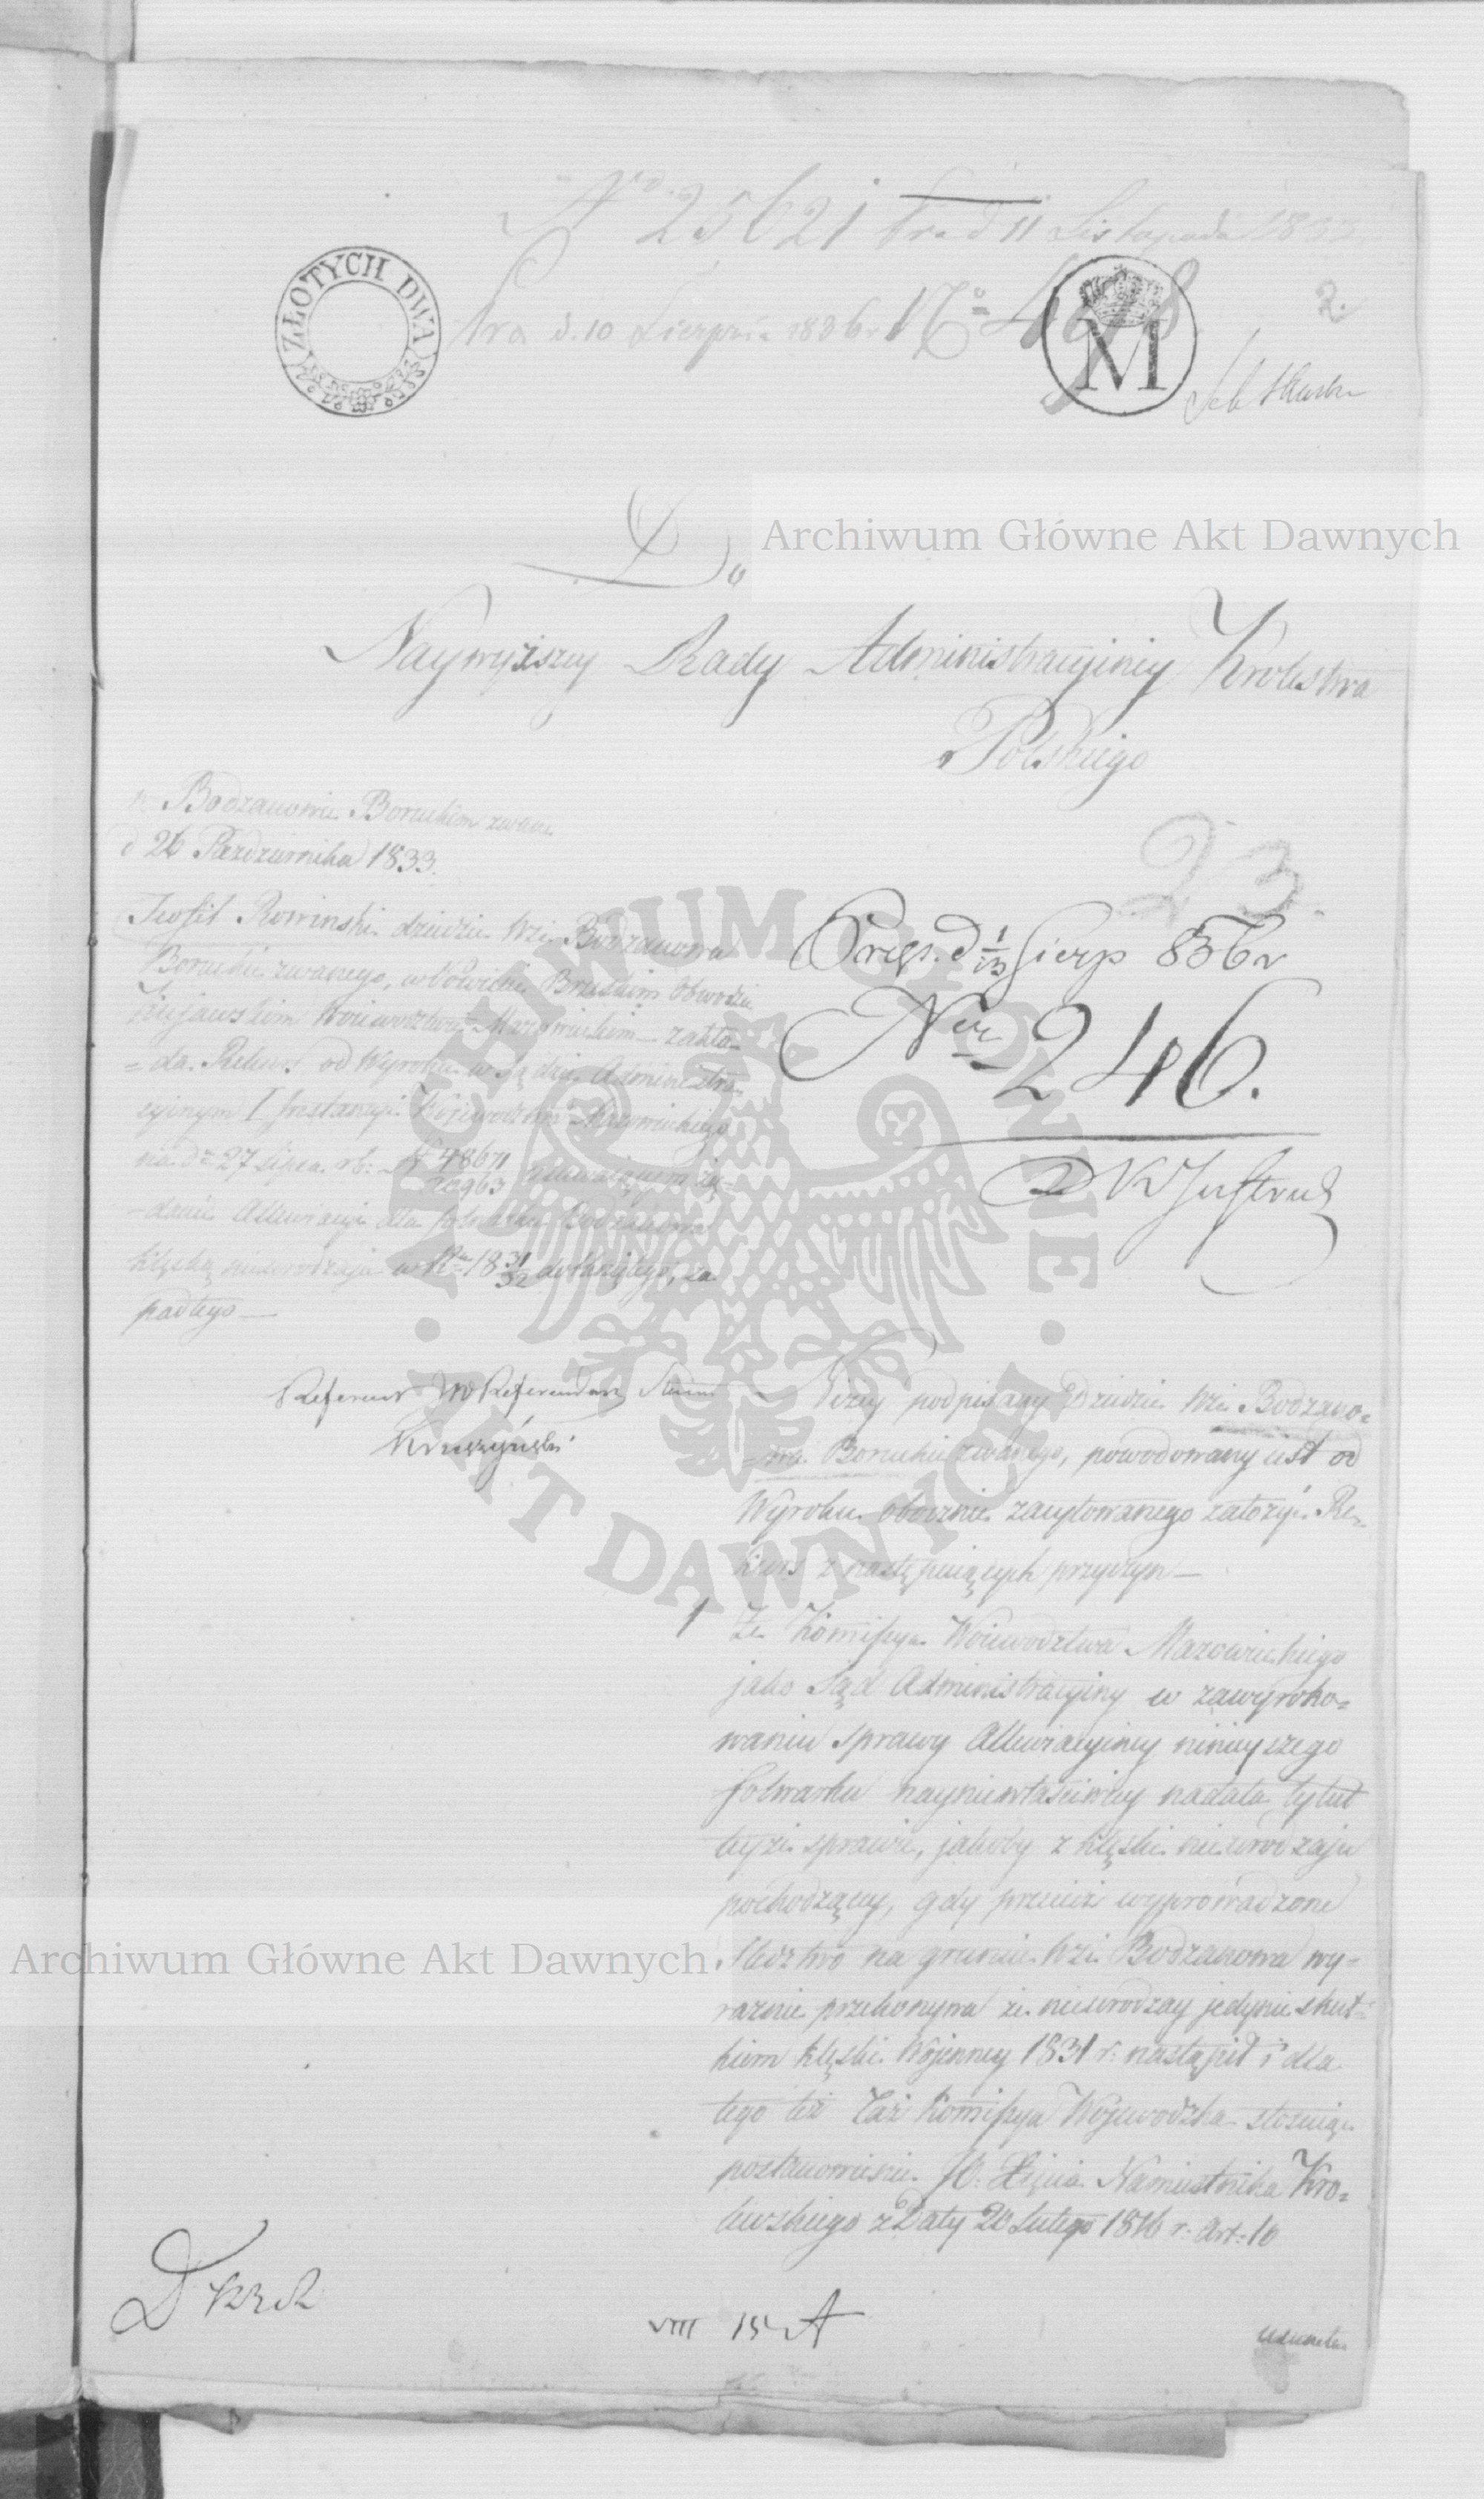 No 25621 Pr. d 11 Listopada 1833
ZŁOTYCH DWA
Pra d. 10 Sierpnia 1836 r No 4
M
2.
Do
Archiwum Główne Akt Dawnych
Naywyższey Rady Administracyiney Krolestwa
Polskiego
w Bodzanowie Boruckim zwane
d 26 Pazdziernika 1833.
23
Teofil Rowinski dziedzic Wsi Bodzanowa
Boruckie zwanego, w Powiecie Brzeskim Obwodzie
Kujawskim Woiewodztwie Mazowieckim zakła-
=da Rekurs od Wyroku w Sądzie Administra
cyjnym I Instancyi Woiewodztwa Mazowieckiego
na dn 27 Lipca rb: N 48671
20963 żą=
-daniu Allewiacyi dla folwarku Bodzanowa
klęską nieurodzaju w Rku 18 31/32 dotkniętego, za
padłego —
Prez. d 1/13 Sierp 836 r
Nr 246.
Referent Referendarz Stanu
Kruszyński
Niżey podpisany Dziedzic Wsi Bodzano=
=wa Boruckie zwanego, powodowany iest od
Wyroku obocznie zacytowanego założyć Re=
kurs z następuiących przyczyn —
1 Że Kommissya Woiewodztwa Mazowieckiego
jako Sąd Administracyiny w zawyroko=
waniu sprawy Allewiacyiney ninieyszego
folwarku nayniewłaściwiey nadała tytuł
teyże sprawie, jakoby z klęski nieurodzaju
pochodzącey, gdy przecież wyprowadzone
Archiwum Główne Akt Dawnych
Sledztwo na gruncie Wsi Bodzanowa wy-
raznie przekonywa że nieurodzay jedynie skut=
kiem klęski Wojenney 1831 r: nastąpił i dla
tego też Taż Kommissya Wojewodzka stosuiąc
postanowienie JO: Xięcia Namiestnika Kro=
lewskiego z Daty 20 Lutego 1816 r. Art: 10
VIII 15 A
ARCHIWUM GŁÓWNE · AKT DAWNYCH ·